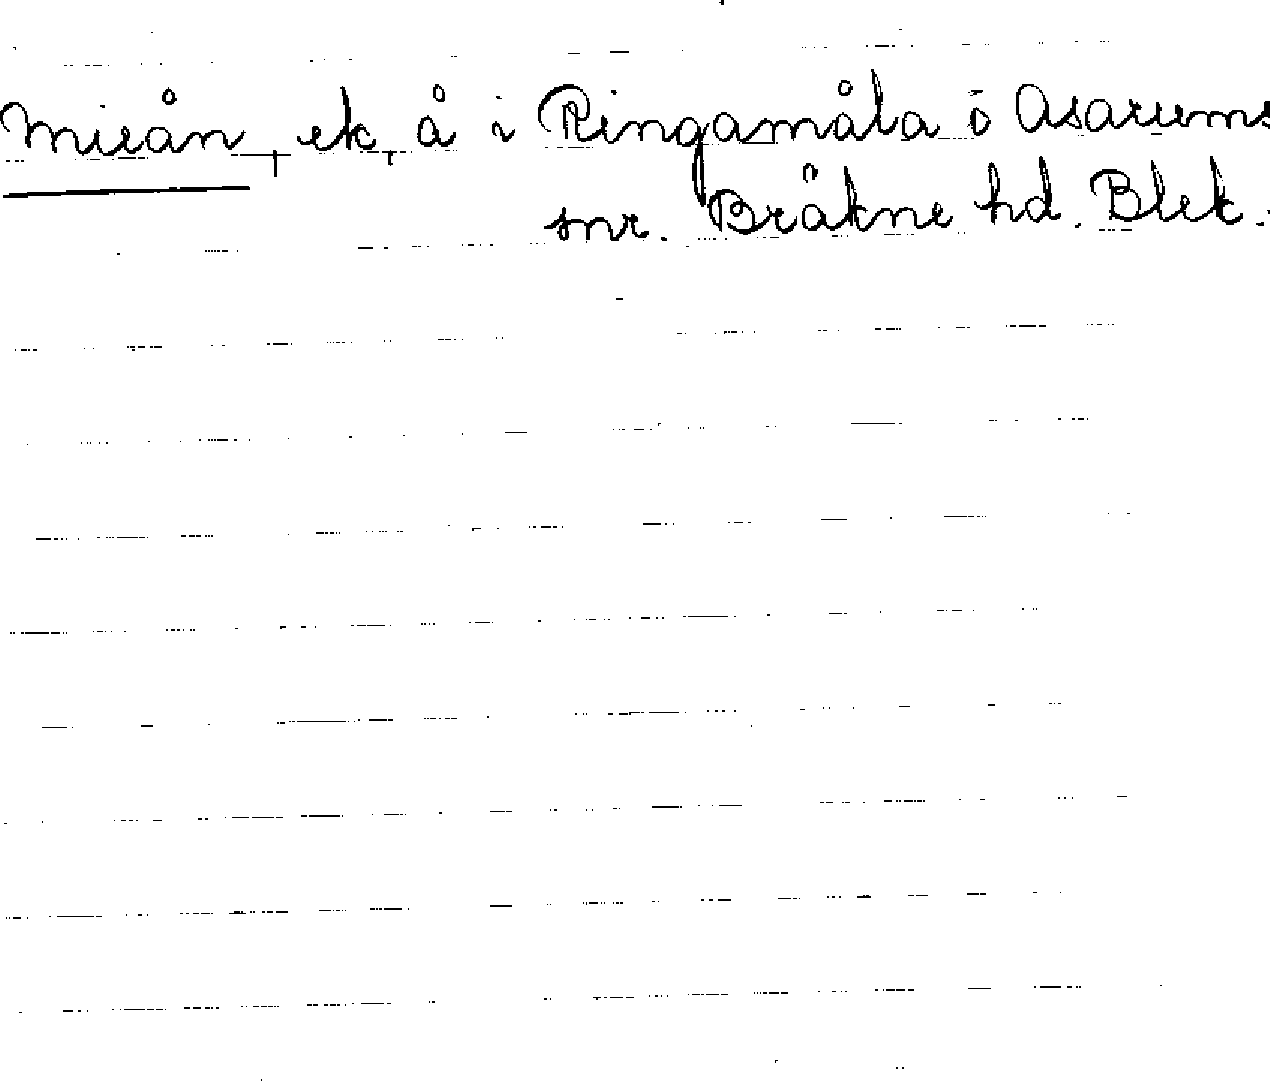 Mieån, ek, å i Ringamåla o Asarums
snr. Bräkne hd. Blek.